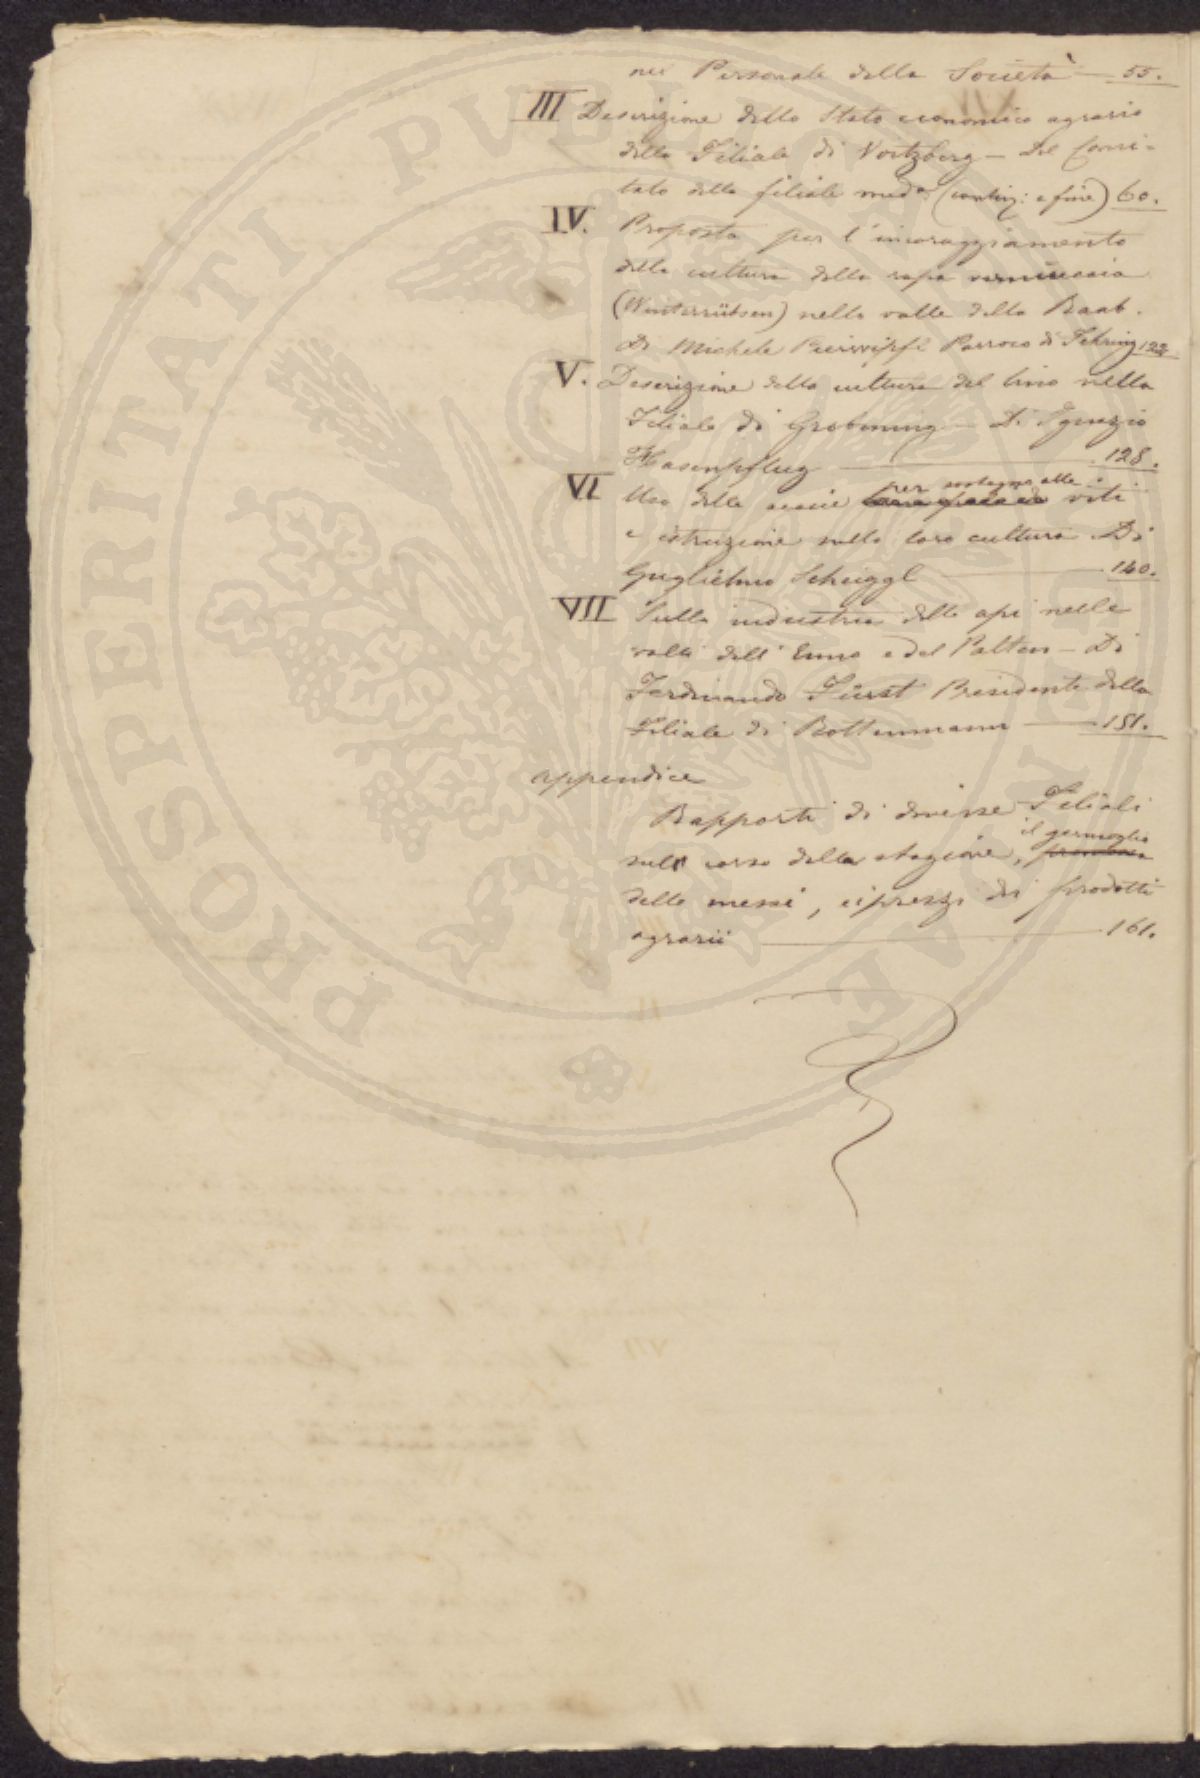 nel Personale della Società — 55.
III Descrizione dello Stato economico agrario
della Filiale di Voitzberg — Del Comi-
tato della filiale med.ª (contin: e fine) 60.
IV. Proposta per l'incoraggiamento
della cultura della rapa
(Winterrübsen) nella valle della Raab.
Di Michele Parroco di Fehring 122
V. Descrizione della cultura del lino nella
Filiale di Grobming — Di Ignazio
Hasenpflug — 128.
VI Uso delle acacie per sostegno alle viti
e istruzione sulla loro cultura Di
Guglielmo Scheiggl — 140.
VII Sulla industria delle api nelle
valli dell' Enns e del Palten — Di
Ferdinando Fürst Presidente della
Filiale di Rottenmann — 151.
appendice
Rapporti di diverse Filiali
sul corso della stagione, il germoglio
delle messi, e i prezzi dei prodotti
agrarii — 161.
PROSPERITATI PVBLICAE